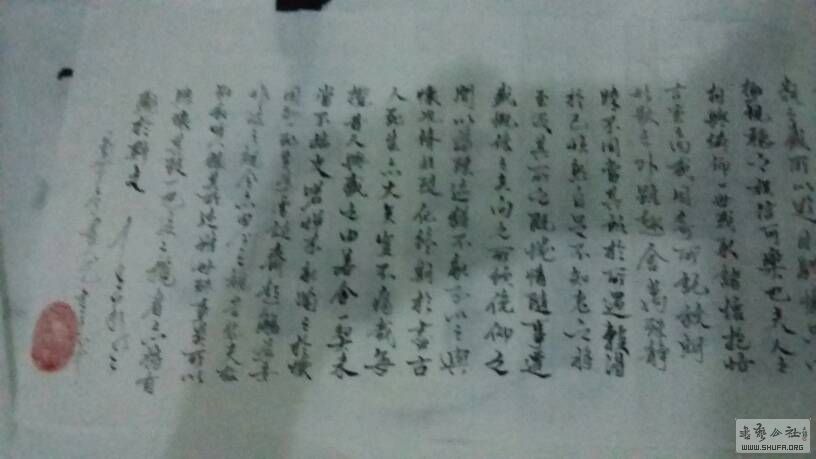 類之盛所以遊目騁懷足以
極視聽之娛信可樂也夫人之
相與俯仰一世或取諸懷抱悟
言室之內或因寄所託放浪
形骸之外雖趣舍萬殊靜
躁不同當其欣於所遇暫得
於己怏然自足不知老之將
至及其所之既惓情隨事遷
感慨係之矣向之所欣俛仰之
間以為陳迹猶不能不以之興
懷況脩短隨化終期於盡古
人云死生亦大矣豈不痛哉每
攬昔人興感之由若合一契未
嘗不臨文嗟悼不能喻之於懷
固知一死生為虛誕齊彭殤為妄
作後之視今亦由今之視昔悲夫故
列敘時人錄其所述雖世殊事異所以
興懷其致一也後之攬者亦將有
感於斯文
書藝公社
WWW.SHUFA.ORG